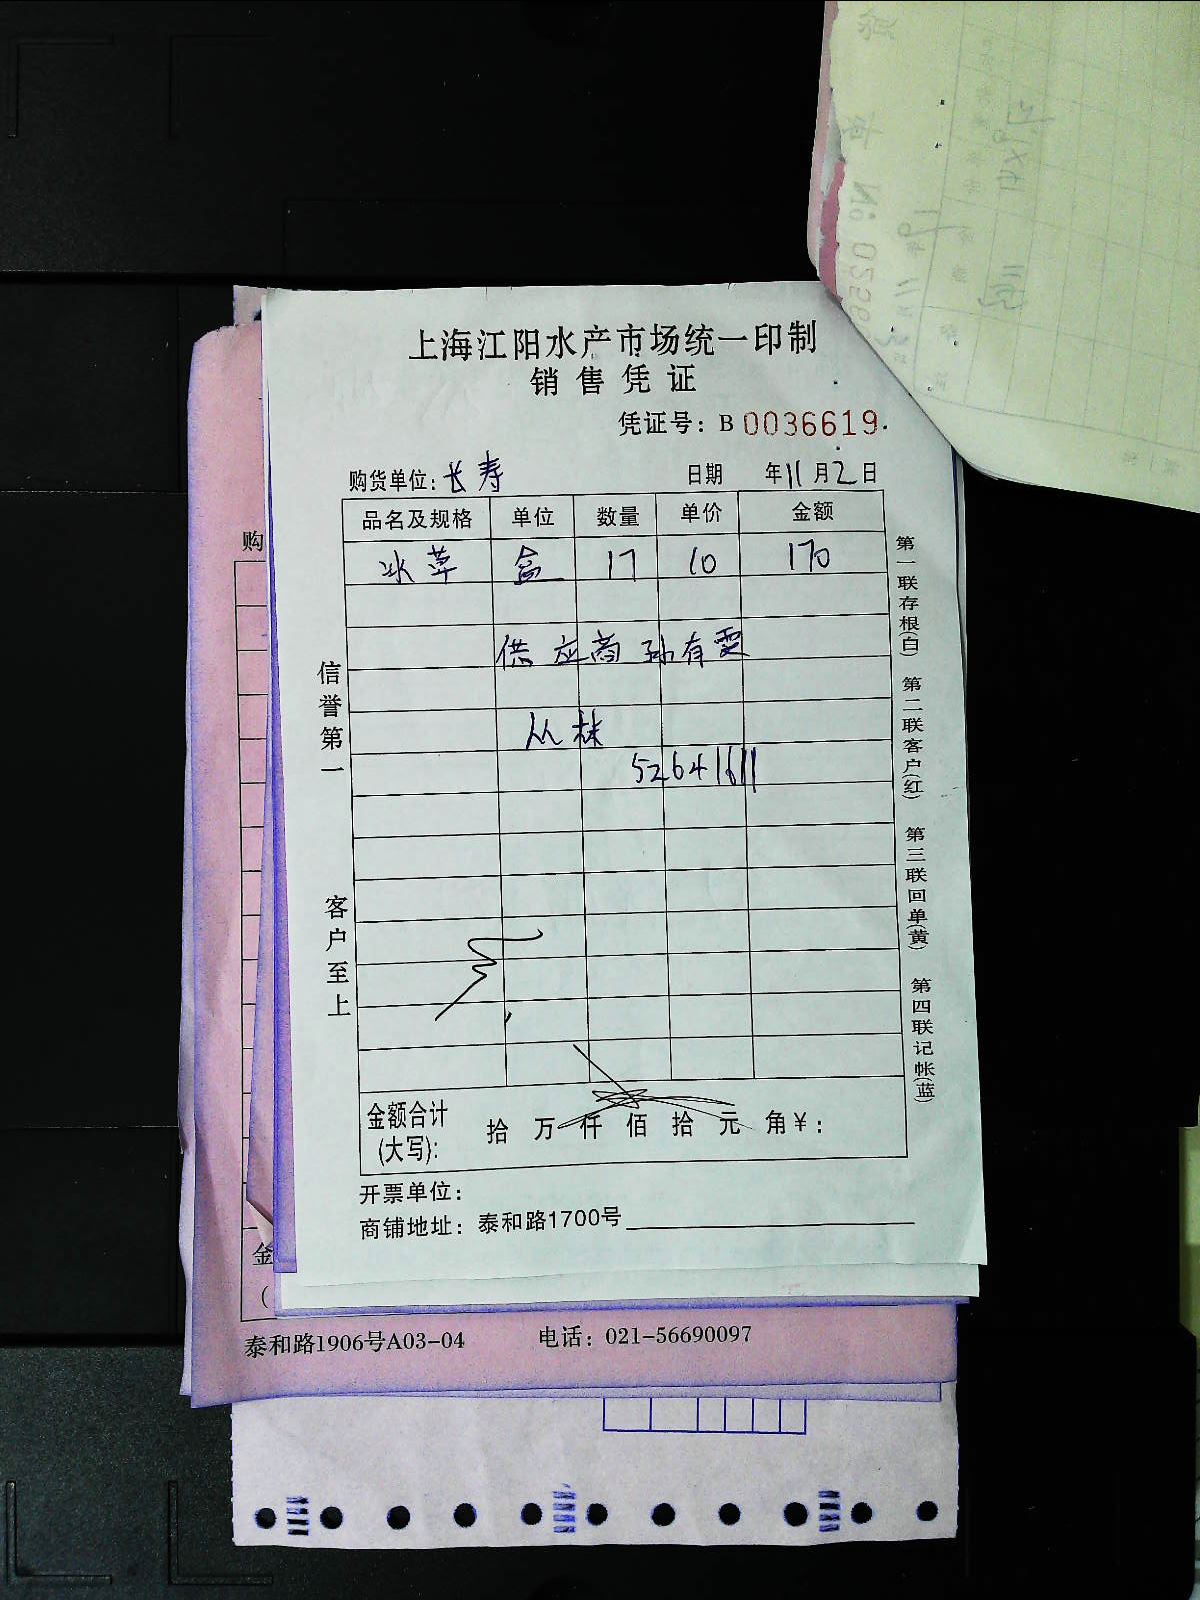 上海江阳水产市场统一印制
销售凭证
凭证号：B 0036619
购货单位：长寿 日期 年11月2日
品名及规格 单位 数量 单价 金额
冰草 盒 17 10 170
供应商 孙有雯
丛林
52641611
金额合计(大写)： 拾 万 仟 佰 拾 元 角 ¥：
开票单位：
商铺地址：泰和路1700号
信誉第一 客户至上
第一联存根(白) 第二联客户(红) 第三联回单(黄) 第四联记帐(蓝)
购
金
(
泰和路1906号A03-04 电话：021-56690097